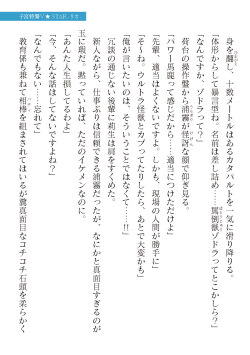 身を翻し、十数メートルはあるカタパルトを一気に滑り降りる。
「体形からして暴言型ね。名前は差し詰め……罵倒獣ゾドラってとこかしら？」
「なんですか、ゾドラって？」
荷台の操作盤から浦霧が怪訝な顔で仰ぎ見る。
「パワー馬鹿って感じだから……適当につけただけよ」
「先輩、適当はよくないですよ。しかも、現場の人間が勝手に」
「そ〜ね。ウルトラ怪獣とカブってたりしたら、あとで大変かも」
「俺が言いたいのは、そういうことではなくて……!!」
冗談の通じない後輩に莉生は肩をすくめた。
新人ながら、仕事ぶりは信頼できる浦霧だったが、なにかと真面目すぎるのが
玉に瑕だ。黙っていれば、ただのイケメンなのに。
「あんた人生損してるわよ」
「今、そんな話はしてないですよね？」
「なんでもない……忘れて」
教育係も兼ねて相棒を組まされてはいるが糞真面目なコチコチ石頭を柔らかく